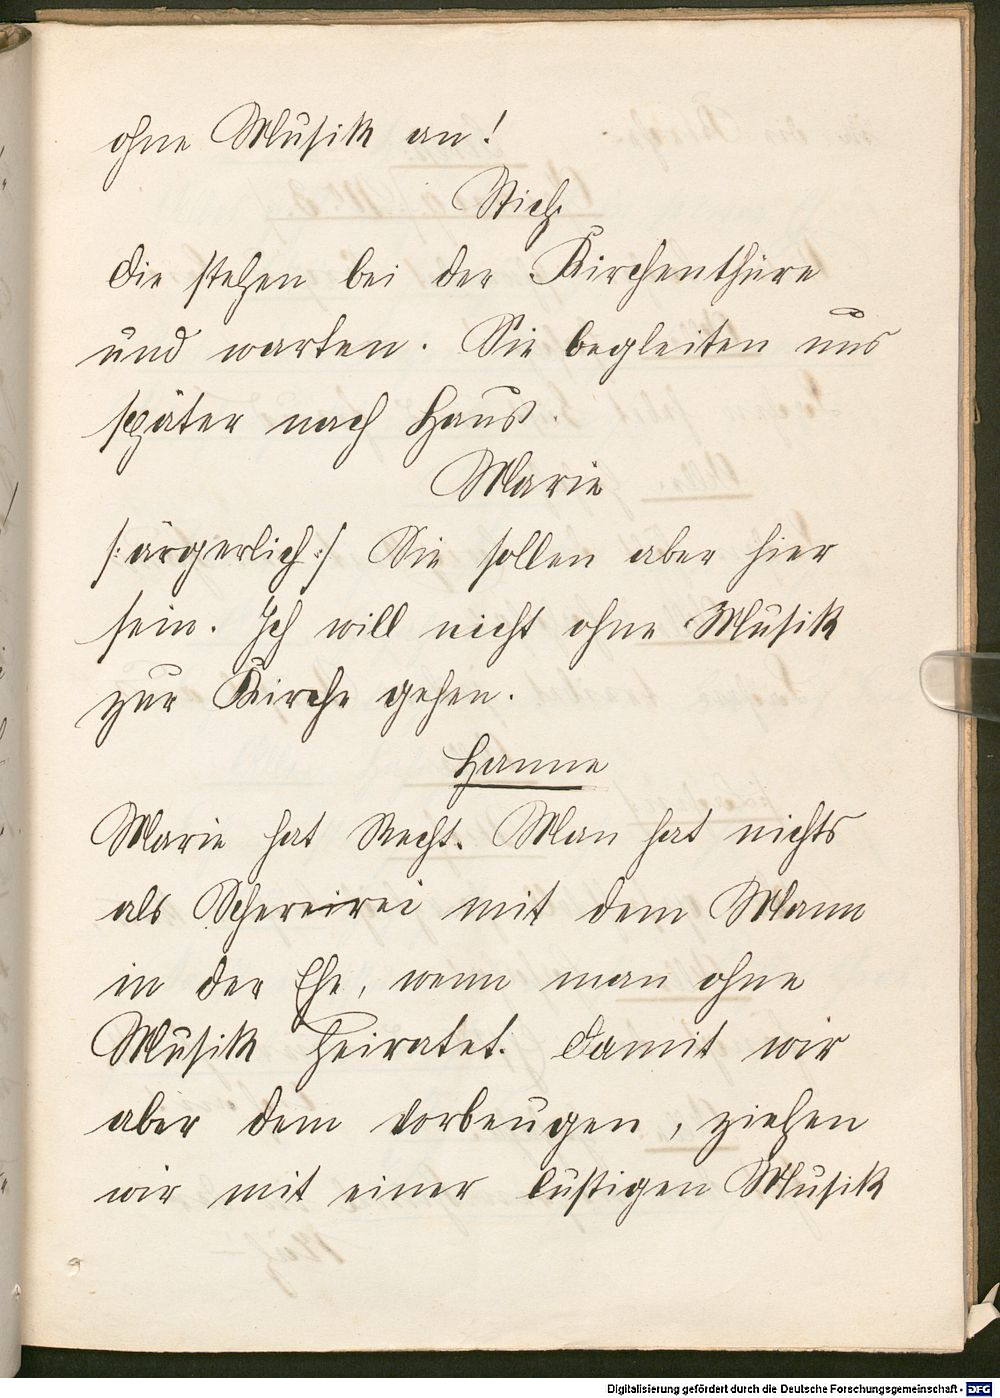 ohne Musik an!
Stich.
Die stehen bei der Kirchenthüre
und warten. Sie begleiten uns
später nach Haus.
Marie
/:ärgerlich:/ Sie sollen aber hier
sein. Ich will nicht ohne Musik
zur Kirche gehen.
Hanne
Marie hat Recht. Man hat nichts
als Schereirei mit dem Mann
in der Ehe, wenn man ohne
Musik heiratet. Damit wir
aber dem vorbeugen, ziehen
wir mit einer lustigen Musik
Digitalisierung gefördert durch die Deutsche Forschungsgemeinschaft - DFG